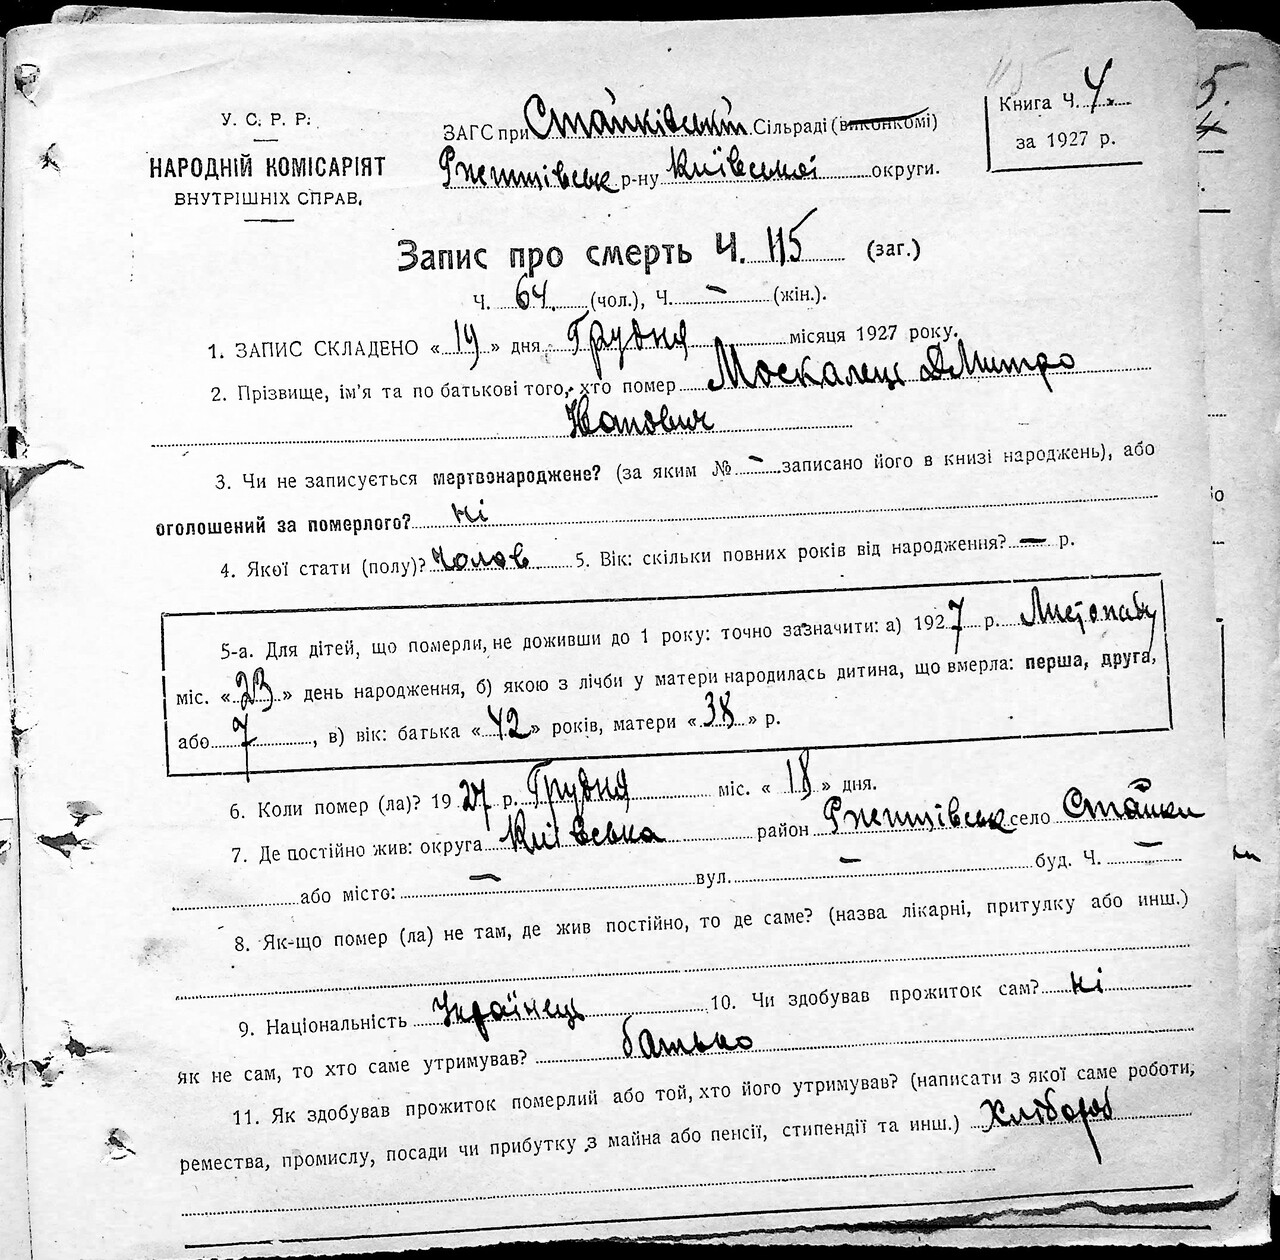 У. С. Р. Р.
НАРОДНІЙ КОМІСАРІЯТ
ВНУТРІШНІХ СПРАВ.
ЗАГС при Стайківській Сільраді (виконкомі)
Ржищівськ р-ну Київської округи.
Книга Ч. 4.
за 1927 р.
Запис про смерть Ч. 115 (заг.)
Ч. 64 (чол.), Ч. – (жін.).
1. ЗАПИС СКЛАДЕНО « 19 » дня Грудня місяця 1927 року.
2. Прізвище, ім'я та по батькові того, хто помер Москалець Дмитро
Іванович
3. Чи не записується мертвонароджене? (за яким № – записано його в книзі народжень), або
оголошений за померлого? ні
4. Якої стати (полу)? чолов 5. Вік: скільки повних років від народження? – р.
5-а. Для дітей, що померли, не доживши до 1 року: точно зазначити: а) 1927 р. Листопаду
міс. « 23 » день народження, б) якою з лічби у матери народилась дитина, що вмерла: перша, друга,
або 7, в) вік: батька « 42 » років, матери « 38 » р.
6. Коли помер (ла)? 1927 р. Грудня міс. « 18 » дня.
7. Де постійно жив: округа Київська район Ржищівськ село Стайки
або місто: – вул. – буд. Ч. –
8. Як-що помер (ла) не там, де жив постійно, то де саме? (назва лікарні, притулку або инш.)
9. Національність Українець 10. Чи здобував прожиток сам? ні
як не сам, то хто саме утримував? батько
11. Як здобував прожиток померлий або той, хто його утримував? (написати з якої саме роботи,
ремества, промислу, посади чи прибутку з майна або пенсії, стипендії та инш.) Хлібороб